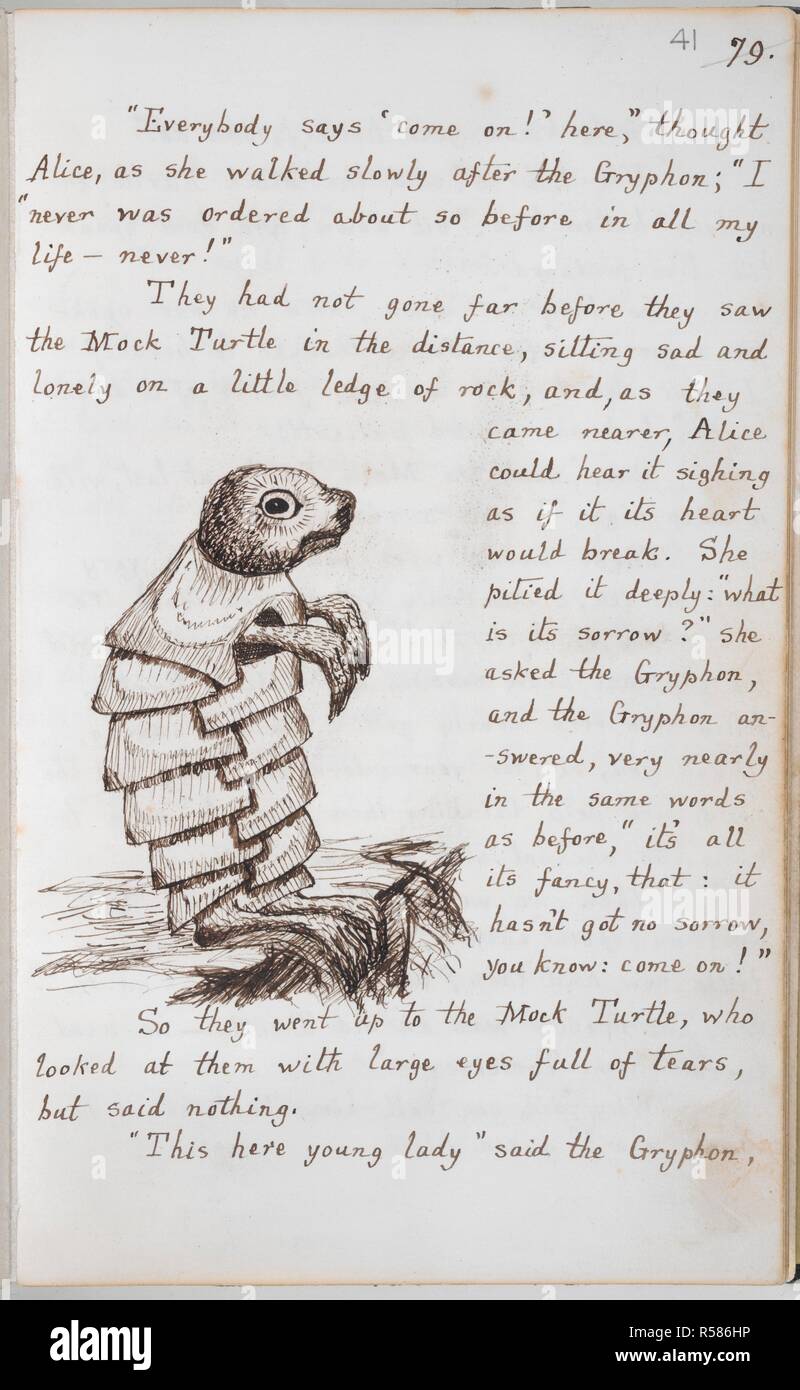 41 79.
"Everybody says 'come on!' here," thought
Alice, as she walked slowly after the Gryphon; "I
"never was ordered about so before in all my
life — never!"
They had not gone far before they saw
the Mock Turtle in the distance, sitting sad and
lonely on a little ledge of rock, and, as they
came nearer, Alice
could hear it sighing
as if it its heart
would break. She
pitied it deeply: "what
is its sorrow?" she
asked the Gryphon,
and the Gryphon an-
-swered, very nearly
in the same words
as before, "it's all
its fancy, that: it
hasn't got no sorrow,
you know: come on!"
So they went up to the Mock Turtle, who
looked at them with large eyes full of tears,
but said nothing.
"This here young lady" said the Gryphon,
alamy
Image ID: R586HP
www.alamy.com